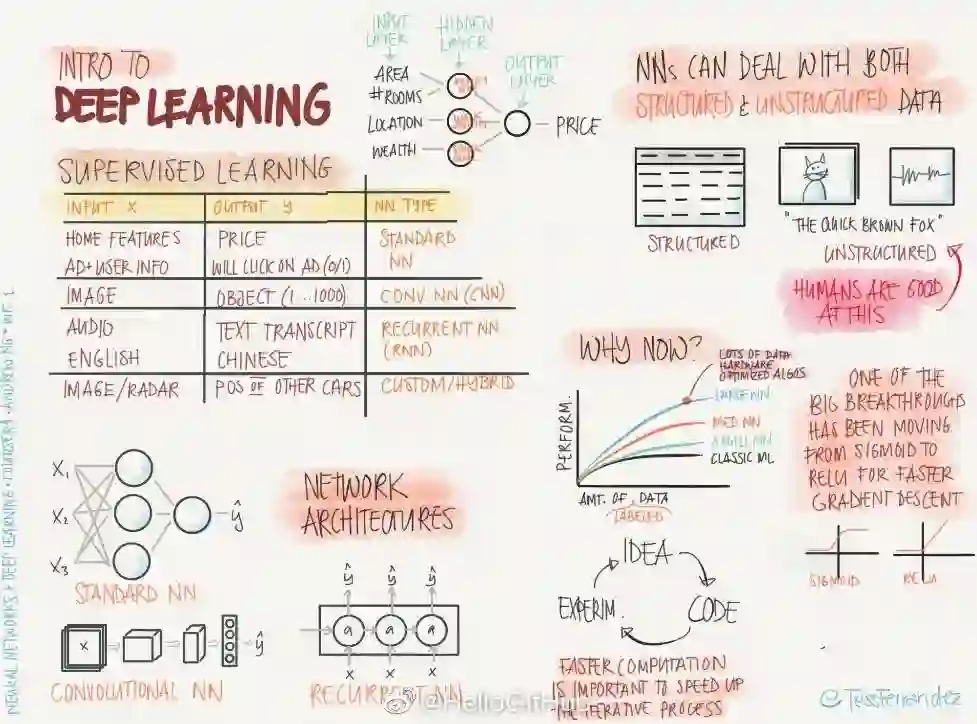 INTRO TO
DEEP LEARNING
INPUT
LAYER
HIDDEN
LAYER
OUTPUT
LAYER
AREA
#ROOMS
LOCATION
WEALTH
PRICE
SUPERVISED LEARNING
INPUT X OUTPUT y NN TYPE
HOME FEATURES PRICE STANDARD
AD+USER INFO WILL CLICK ON AD (0/1) NN
IMAGE OBJECT (1...1000) CONV NN (CNN)
AUDIO TEXT TRANSCRIPT RECURRENT NN
ENGLISH CHINESE (RNN)
IMAGE/RADAR POS OF OTHER CARS CUSTOM/HYBRID
NNs CAN DEAL WITH BOTH
STRUCTURED & UNSTRUCTURED DATA
STRUCTURED
"THE QUICK BROWN FOX"
UNSTRUCTURED
HUMANS ARE GOOD
AT THIS
WHY NOW?
LOTS OF DATA
HARDWARE
OPTIMIZED ALGOS
LARGE NN
MED NN
SMALL NN
CLASSIC ML
PERFORM.
AMT. OF DATA
LABELED
ONE OF THE
BIG BREAKTHROUGHS
HAS BEEN MOVING
FROM SIGMOID TO
RELU FOR FASTER
GRADIENT DESCENT
SIGMOID
RELU
X1
X2
X3
ŷ
STANDARD NN
NETWORK
ARCHITECTURES
X
ŷ
CONVOLUTIONAL NN
ŷ ŷ ŷ
a a a
X X X
RECURRENT NN
IDEA
CODE
EXPERIM.
FASTER COMPUTATION
IS IMPORTANT TO SPEED UP
THE ITERATIVE PROCESS
@HelloGitHub
@TessFerrandez
NEURAL NETWORKS & DEEP LEARNING • COURSERA • ANDREW NG